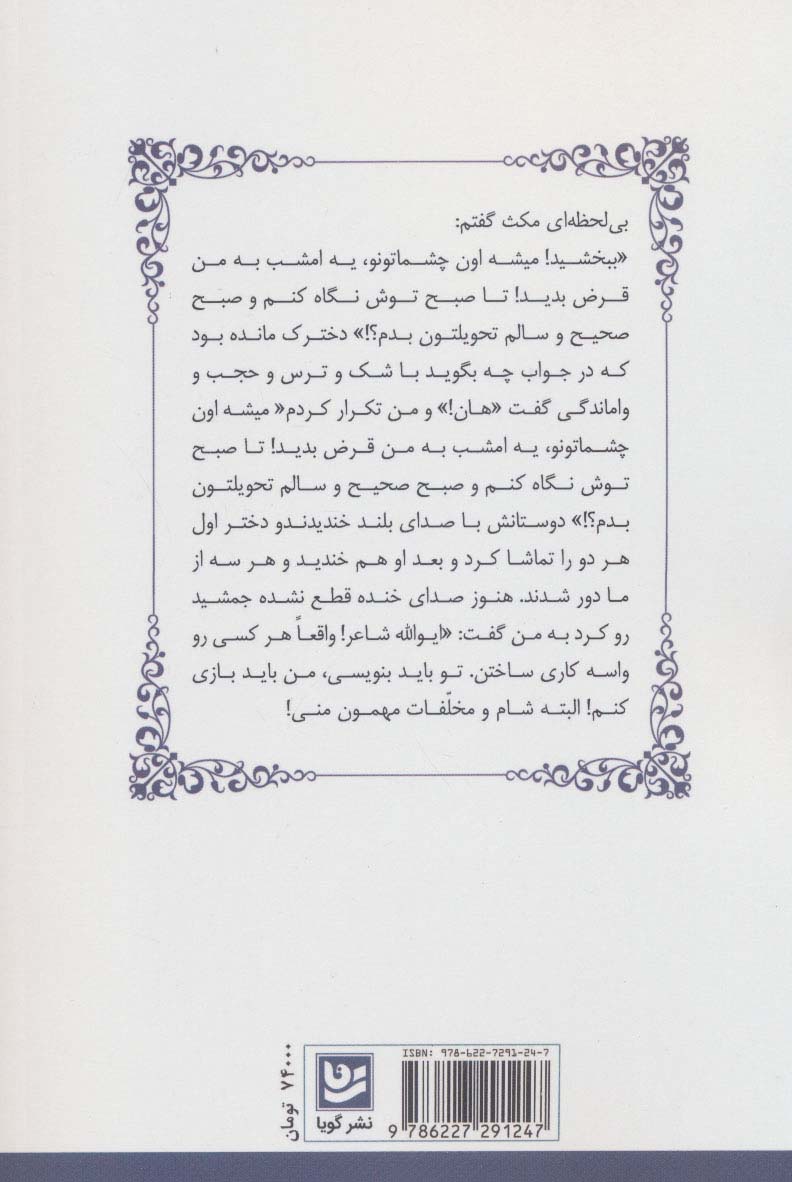 بی‌لحظه‌ای مکث گفتم:
«ببخشید! میشه اون چشماتونو، یه امشب به من
قرض بدید! تا صبح توش نگاه کنم و صبح
صحیح و سالم تحویلتون بدم؟!» دخترک مانده بود
که در جواب چه بگوید با شک و ترس و حجب و
واماندگی گفت «هان!» و من تکرار کردم« میشه اون
چشماتونو، یه امشب به من قرض بدید! تا صبح
توش نگاه کنم و صبح صحیح و سالم تحویلتون
بدم؟!» دوستانش با صدای بلند خندیدندو دختر اول
هر دو را تماشا کرد و بعد او هم خندید و هر سه از
ما دور شدند. هنوز صدای خنده قطع نشده جمشید
رو کرد به من گفت: «ایوالله شاعر! واقعاً هر کسی رو
واسه کاری ساختن. تو باید بنویسی، من باید بازی
کنم! البته شام و مخلّفات مهمون منی!
۷۴۰۰۰ تومان
نشر گویا
ISBN: 978-622-7291-24-7
9 786227 291247